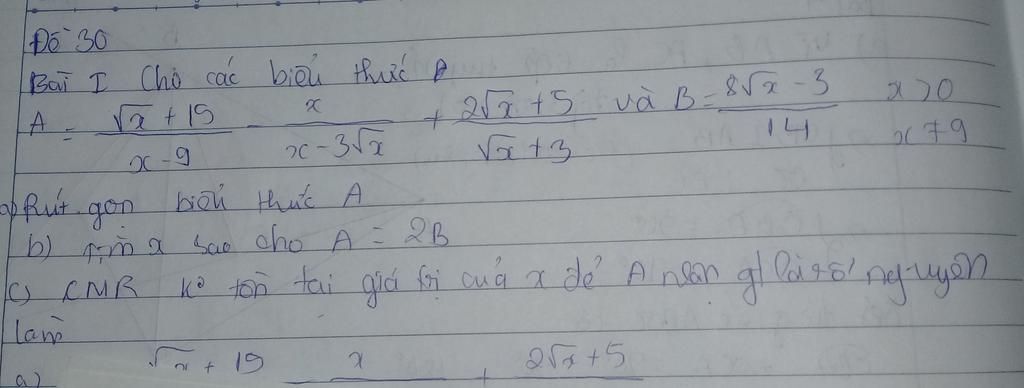 Đề 30
Bài I Cho các biểu thức A
A = \frac{\sqrt{x} + 15}{x - 9} - \frac{x}{x - 3\sqrt{x}} + \frac{2\sqrt{x} + 5}{\sqrt{x} + 3} và B = \frac{8\sqrt{x} - 3}{14} x > 0 x ≠ 9
a) Rút gọn biểu thức A
b) Tìm x sao cho A = 2B
c) CMR K° tồn tại giá trị của x để A nhận gt là số nguyên
làm
a) \frac{\sqrt{x} + 19}{} - \frac{x}{} + \frac{2\sqrt{x} + 5}{}